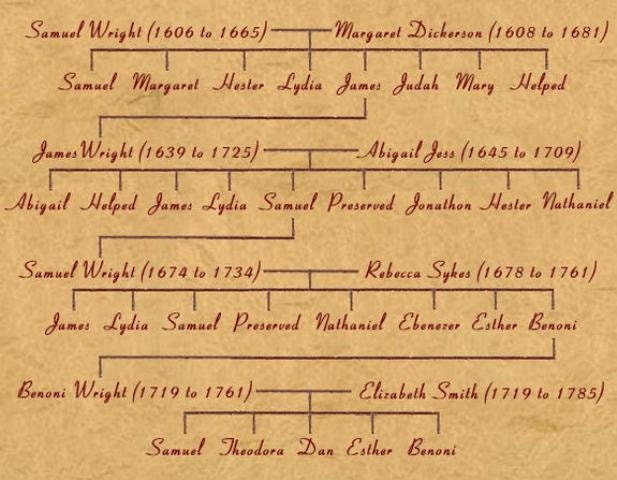 Samuel Wright (1606 to 1665) Margaret Dickerson (1608 to 1681)
Samuel Margaret Hester Lydia James Judah Mary Helped
James Wright (1639 to 1725) Abigail Jess (1645 to 1709)
Abigail Helped James Lydia Samuel Preserved Jonathon Hester Nathaniel
Samuel Wright (1674 to 1734) Rebecca Sykes (1678 to 1761)
James Lydia Samuel Preserved Nathaniel Ebenezer Esther Benoni
Benoni Wright (1719 to 1761) Elizabeth Smith (1719 to 1785)
Samuel Theodora Dan Esther Benoni